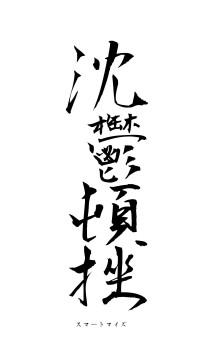 沈鬱頓挫
スマートマイズ